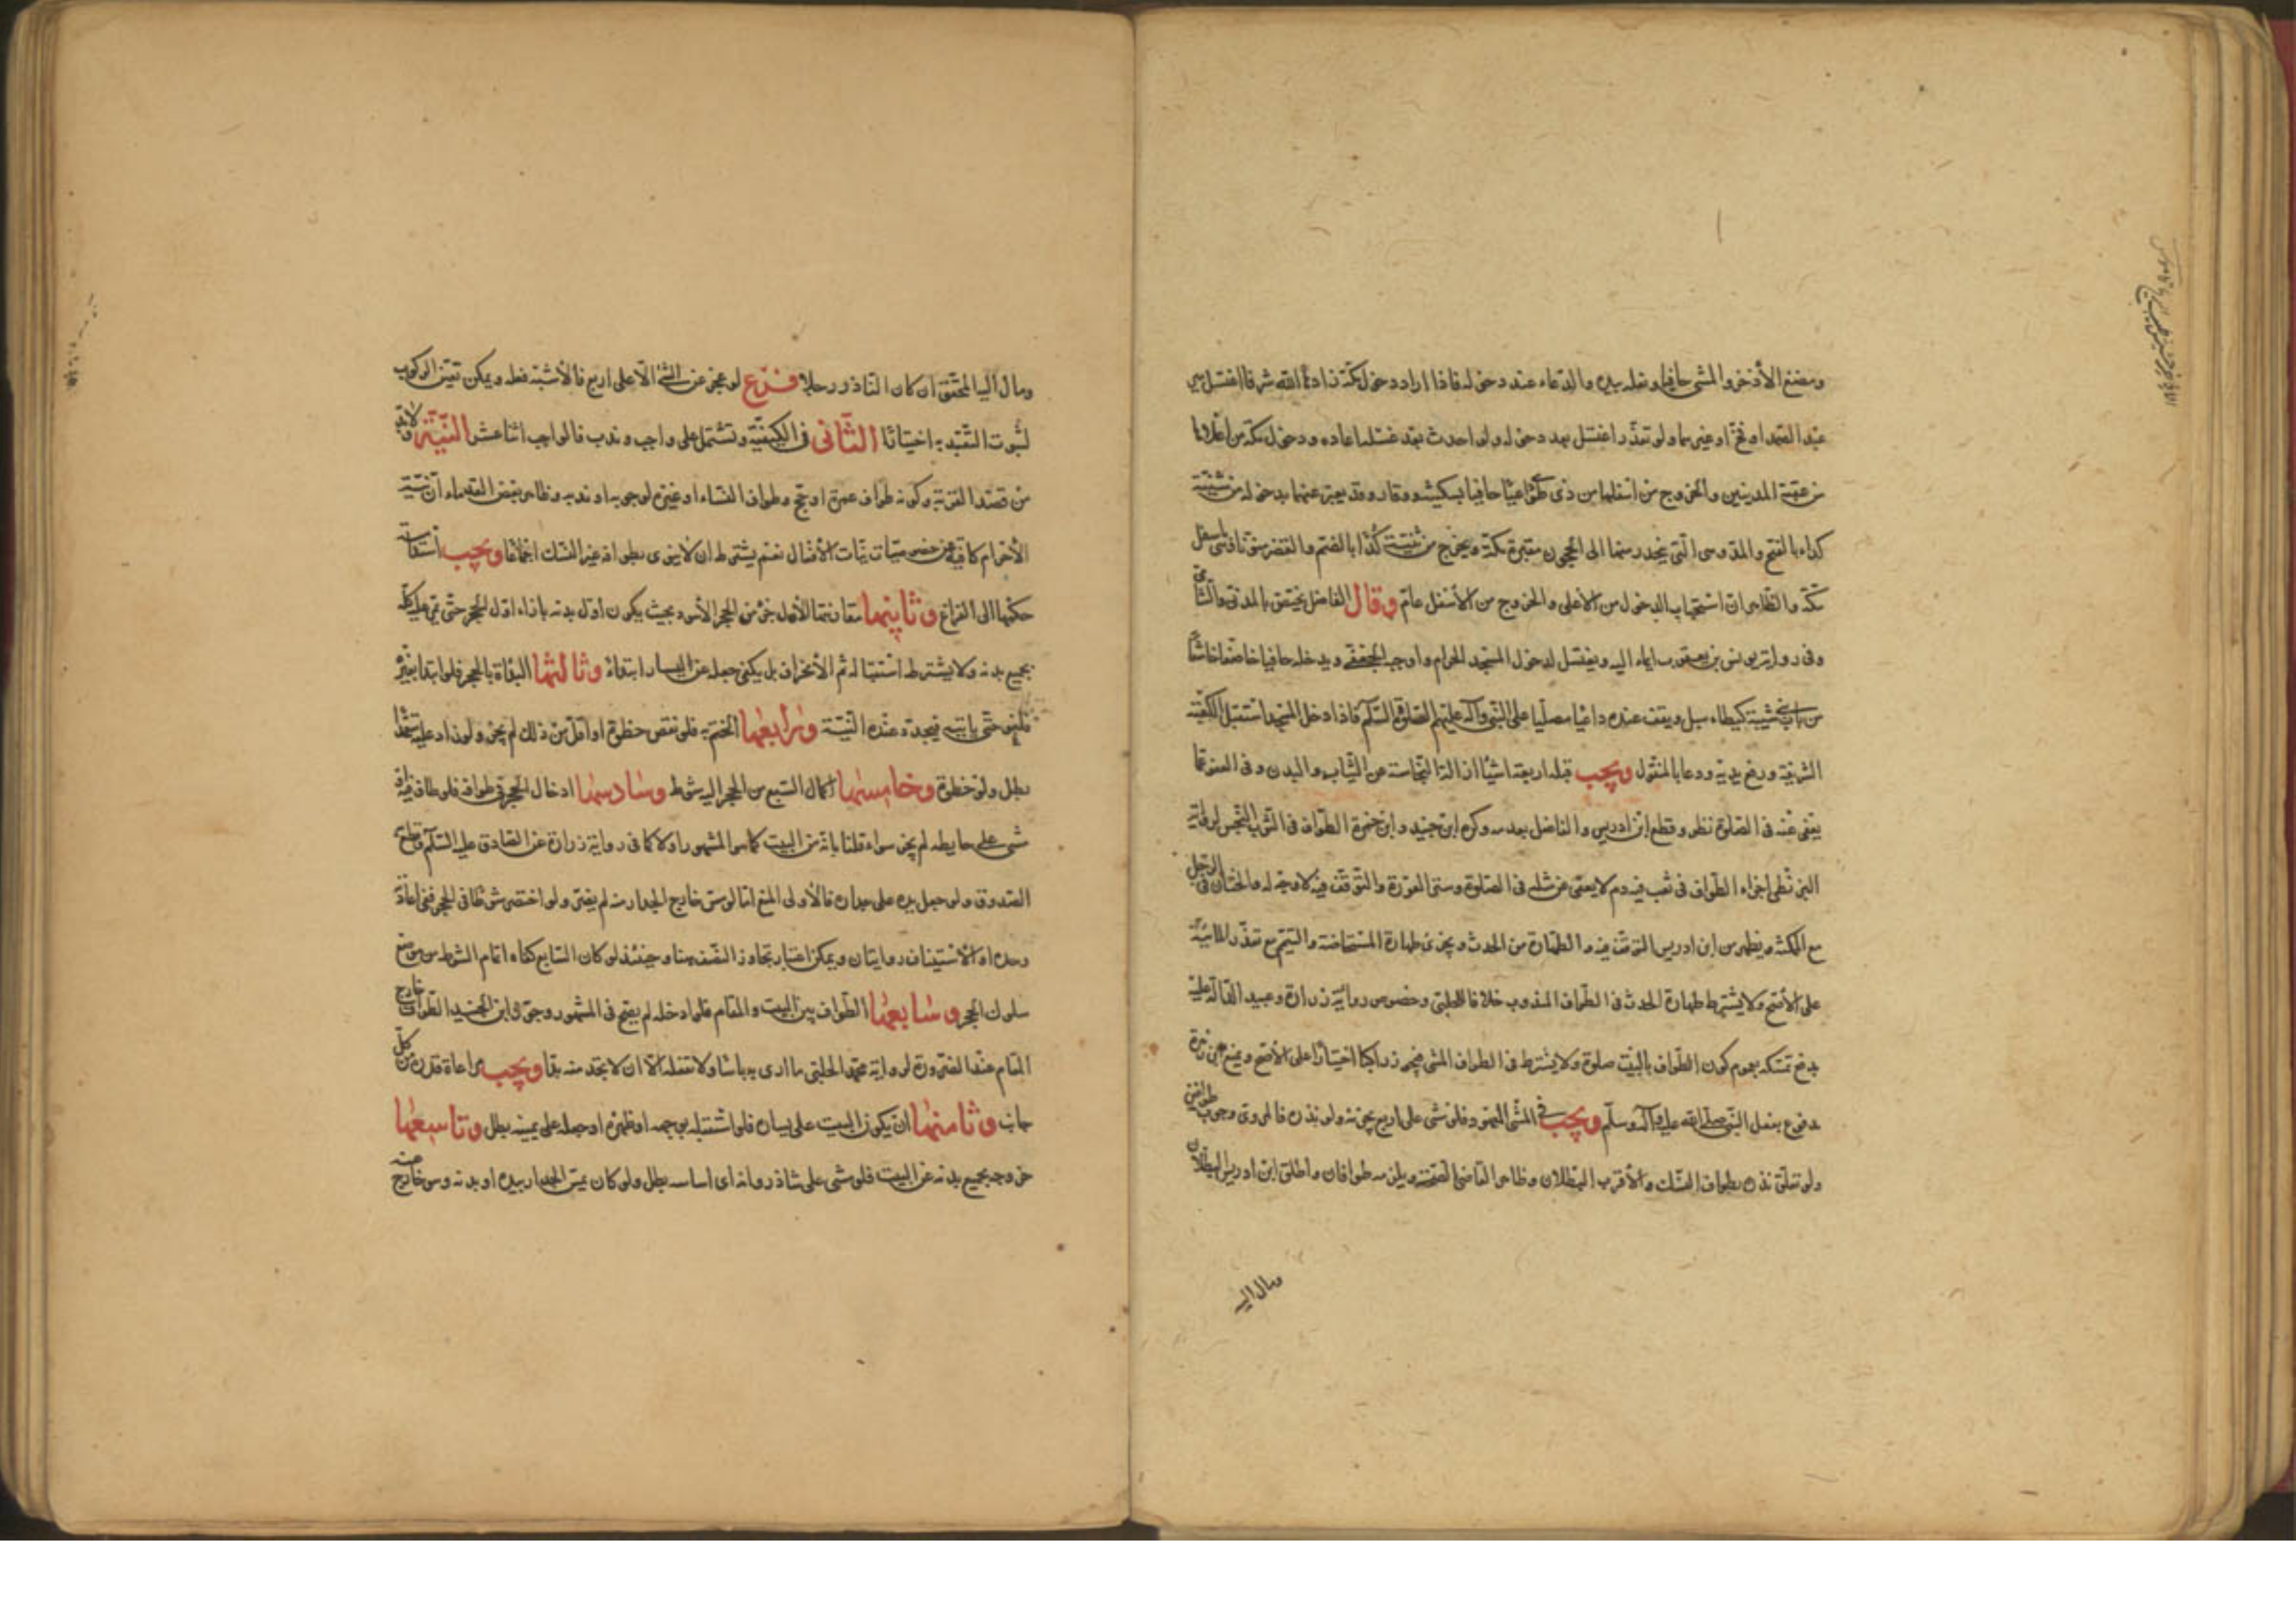 ومضغ الأذخر والمشي حافيا ونعله بيده والدعاء عند دخوله فاذا اراد دخول مكة زادها الله شرفا اغتسل من
عبد الصمد او فخ او غيرهما ولو تعذر اغتسل بعد دخوله ولو احدث بعد غسله اعاده ودخول مكة من اعلاها
من عقبة المدنيين والخروج من اسفلها من ذي طوى حافيا بسكينة ووقار وقد يعبر عنهما بدخوله من ثنية
كداء بالفتح والمد وهي التي ينحدر منها الى الحجون مقبرة مكة ويخرج من ثنية كدا بالضم والقصر منونا وهي باسفل
مكة والظاهر ان استحباب الدخول من الاعلى والخروج من الأسفل عام وقال الفاضل يختص بالمدني والشامي
وفي رواية يونس بن يعقوب ايماء اليه ويغتسل لدخول المسجد الحرام واوجبه الجعفي ويدخله حافيا خاضعا خاشعا
من باب بني شيبة ويقف عنده داعيا مصليا على النبي وآله عليهم الصلوة والسلام فاذا دخل المسجد استقبل الكعبة
الشريفة ورفع يديه ودعا بالمنقول ويجب قبله اربعة اشياء ازالة النجاسة عن الثياب والبدن وفي العفو عما
يعفى عنه في الصلوة نظر وقطع ابن ادريس والفاضل بعدمه وكره ابن جنيد وابن حمزة الطواف في الثوب النجس لرواية
البزنطي اجزاء الطواف في ثوب فيه دم لا يعفى عن مثله في الصلوة وستر العورة والتوقف فيه لا وجه له والختان في الرجل
مع المكنة ويظهر من ابن ادريس التوقف فيه والطهارة من الحدث ويجزئ طهارة المستحاضة والتيمم مع تعذر المائية
على الأصح ولا يشترط طهارة الحدث في الطواف المندوب خلافا للحلبي وخصوص رواية زرارة وعبيد الدالة عليه
يدفع تمسكه بعموم كون الطواف بالبيت صلوة ولا يشترط في الطواف المشي فيجوز راكبا اختيارا على الأصح ومنع ابن زهرة
مدفوع بفعل النبي صلى الله عليه وآله وسلم ويجب في المشي المعهود فلو مشى على اربع لم يجزئه ولو نذره فالمروي وجوب طوافين
ولو تعلق نذره بطواف النسك والأقرب البطلان وظاهر القاضي الصحة ويلزمه طوافان واطلق ابن ادريس البطلان
ومال اليه
ومال اليه المحقق ان كان الناذر رجلا فرع لو عجز عن المشي الا على اربع فالأشبه فعله ويمكن تعين الركوب
لثبوت التعبد به اختيارا الثاني في الكيفية وتشتمل على واجب وندب فالواجب اثنا عشر النية ولا بد
من قصد القربة وكونه طواف عمرة او حج وطواف النساء او غيره لوجوبه او ندبه وظاهر بعض القدماء ان نية
الأحرام كافية عن خصوصيات نيات الأفعال نعم يشترط ان لا ينوي بطوافه غير النسك اجماعا ويجب استدامة
حكمها الى الفراغ وثانيها مقارنتها لأول جزء من الحجر الأسود بحيث يكون اول بدنه بازاء اول الحجر حتى يمر عليه كله
بجميع بدنه ولا يشترط استقباله ثم الأنحراف بل يكفي جعله عن اليسار ابتداء وثالثها البداة بالحجر فلو ابتدا بغيره
لغى حتى يأتيه فيجدد عنده النية ورابعها الختم به فلو نقص خطوة او اقل من ذلك لم يجز ولو زاد عليه متعمدا
بطل ولو خطوة وخامسها اكمال السبع من الحجر اليه شوط وسادسها ادخال الحجر في طوافه فلو طاف فيه او
مشى على حايطه لم يجز سواء قلنا بانه من البيت كما هو المشهور او لا كما في رواية زرارة عن الصادق عليه السلم
الصدوق ولو جعل يده على جداره فالأولى المنع اما لو مس خارج الجدار منه لم يضر ولو اختصر شوطا في الحجر ففي اعادته
وحده او الأستيناف روايتان ويمكن اعتبار تجاوز النصف هنا وحينئذ لو كان السابع كفاه اتمام الشوط من موضع
سلوك الحجر وسابعها الطواف بين البيت والمقام فلو ادخله لم يصح في المشهور وجوز ابن الجنيد الطواف خارج
المقام عند الضرورة لرواية محمد الحلبي ما ارى به باسا ولا تفعله الا ان لا تجد منه بدا ويجب مراعاة قدره من كل
جانب وثامنها ان يكون البيت على يساره فلو استقبله بوجهه او ظهره او جعله على يمينه بطل وتاسعها
خروجه بجميع بدنه عن البيت فلو مشى على شاذروانه اي اساسه بطل ولو كان يمس الجدار بيده او بدنه وهو خارج عنه